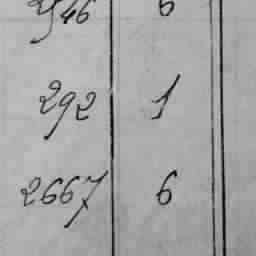 2546 6
292 1
2667 6